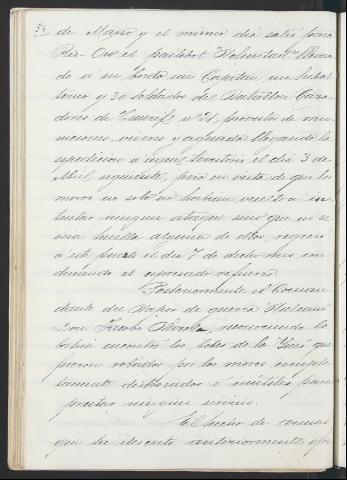 54
de Marzo y el mismo dia salió para
Rio-Oro el pailebot "Voluntad" llevan
do a su bordo un Capitan un subal
terno y 30 soldados del Batallon Caza
dores de Tenerife nº 21, provistos de mu
niciones, viveres y aguada llegando la
espedicion a aquel territorio el dia 3 de
Abril siguiente, pero en vista de que los
moros no solo no habian vuelto a in
tentar ningun ataque sino que no se
veia huella alguna de ellos, regresó
a este puerto el dia 7 de dicho mes con
duciendo el expresado refuerzo.
Posteriormente el Coman
dante del Vapor de guerra "Vulcano"
Don Jacobo Varela, recorriendo la
bahia encontró los botes de la "Ynes" que
fueron robados por los moros comple
tamente destrozados e inutiles para
prestar ningun servicio.
El hecho de
que se descrito anteriormente